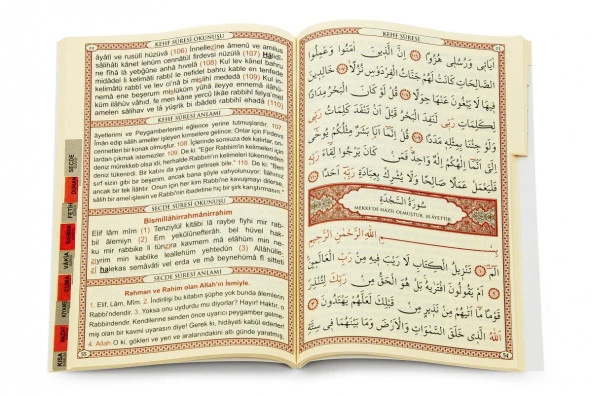 KEHF SÛRESİ OKUNUŞU
âyâtî ve rusülî hüzüvâ (106) İnnellezîne âmenû ve amilus
sâlihâti kânet lehüm cennâtül firdevsi nüzülâ (107) Hâlidî-
ne fîhâ lâ yebğûne anhâ hıvelâ (108) Kul lev kânel bahru
midâdel li kelimâti rabbî le nefidel bahru kable en tenfede
kelimâtü rabbî ve lev ci'nâ bi mislihî mededâ (109) Kul in-
nemâ ene beşerum mislüküm yûhâ ileyye ennemâ ilâhü-
küm ilâhüv vâhıd, fe men kâne yercû likâe rabbihî felya'mel
amelen sâlihav ve lâ yüşrik bi ibâdeti rabbihî ehadâ (110)
KEHF SÛRESİ ANLAMI
âyetlerimi ve Peygamberlerimi eğlence yerine tutmuşlardır. 107.
İman edip sâlih ameller işleyen kimselere gelince, Onlar için Firdevs
cennetleri bir konak olmuştur. 108. İçlerinde sonsuza dek kalırlar, on-
lardan çıkmak istemezler. 109. De ki: "Eğer Rabbin'in kelimeleri için
deniz mürekkeb olsa idi, herhalde Rabbi'nin kelimeleri tükenmeden
deniz tükenirdi. Bir katını da yardım getirsek bile." 110. De ki: "Ben
sırf sizin gibi bir beşerim, ancak bana şöyle vahyolunuyor: İlâhınız
ancak bir tek ilâhtır. Onun için her kim Rabbi'ne kavuşmayı dilerse,
sâlih bir amel işlesin ve Rabbi'nin ibadetine hiç bir şirk karıştırmasın."
SECDE SÛRESİ OKUNUŞU
Bismillâhirrahmânirrahîm
Elif lâm mîm (1) Tenzîylül kitâbi lâ raybe fîyhi mir rab-
bil âlemîyn (2) Em yekûlûnefterâh, bel hüvel hak-
ku mir rabbike li tünzira kavmem mâ etâhüm min ne-
zîyrim min kablike leallehüm yehtedûn (3) Allâhülle-
zî halekas semâvâti vel erda ve mâ beynehümâ fî sitteti
SECDE SÛRESİ ANLAMI
Rahman ve Rahim olan Allah'ın İsmiyle.
1. Elif, Lâm, Mîm. 2. İndirilişi bu kitabın şüphe yok bunda âlemlerin
Rabbindendir. 3. Yoksa onu uydurdu mu diyorlar? Hayır! Haktır, o
Rabbindendir. Kendilerine senden önce uyarıcı peygamber gelme-
miş olan bir kavmi uyarasın diye! Gerek ki, hidâyeti kabûl ederler!
4. Allah O ki, gökleri ve yeri ve aralarındakini altı günde yaratmış,
SECDE
DUHAN
FETİH
RAHMAN
VAKIA
CUMA
KIYAME
KISA
KEHF SÛRESİ
اٰيَاتٖى وَرُسُلٖى هُزُوًا ﴿١٠٦﴾ اِنَّ الَّذٖينَ اٰمَنُوا وَعَمِلُوا
الصَّالِحَاتِ كَانَتْ لَهُمْ جَنَّاتُ الْفِرْدَوْسِ نُزُلًا ﴿١٠٧﴾ خَالِدٖينَ
فٖيهَا لَا يَبْغُونَ عَنْهَا حِوَلًا ﴿١٠٨﴾ قُلْ لَوْ كَانَ الْبَحْرُ مِدَادًا
لِكَلِمَاتِ رَبّٖى لَنَفِدَ الْبَحْرُ قَبْلَ اَنْ تَنْفَدَ كَلِمَاتُ رَبّٖى
وَلَوْ جِئْنَا بِمِثْلِهٖ مَدَدًا ﴿١٠٩﴾ قُلْ اِنَّمَا اَنَا بَشَرٌ مِثْلُكُمْ يُوحٰى
اِلَىَّ اَنَّمَا اِلٰهُكُمْ اِلٰهٌ وَاحِدٌ فَمَنْ كَانَ يَرْجُوا لِقَاءَ رَبِّهٖ
فَلْيَعْمَلْ عَمَلًا صَالِحًا وَلَا يُشْرِكْ بِعِبَادَةِ رَبِّهٖ اَحَدًا ﴿١١٠﴾
سُورَةُ السَّجْدَةِ
MEKKE'DE NAZİL OLMUŞTUR. 30 AYETTİR.
بِسْمِ اللّٰهِ الرَّحْمٰنِ الرَّحٖيمِ
الٓمٓ ﴿١﴾ تَنْزٖيلُ الْكِتَابِ لَا رَيْبَ فٖيهِ مِنْ رَبِّ الْعَالَمٖينَ
﴿٢﴾ اَمْ يَقُولُونَ افْتَرٰيهُ بَلْ هُوَ الْحَقُّ مِنْ رَبِّكَ لِتُنْذِرَ
قَوْمًا مَا اَتٰيهُمْ مِنْ نَذٖيرٍ مِنْ قَبْلِكَ لَعَلَّهُمْ يَهْتَدُونَ ﴿٣﴾
اَللّٰهُ الَّذٖى خَلَقَ السَّمٰوَاتِ وَالْاَرْضَ وَمَا بَيْنَهُمَا فٖى سِتَّةِ
54